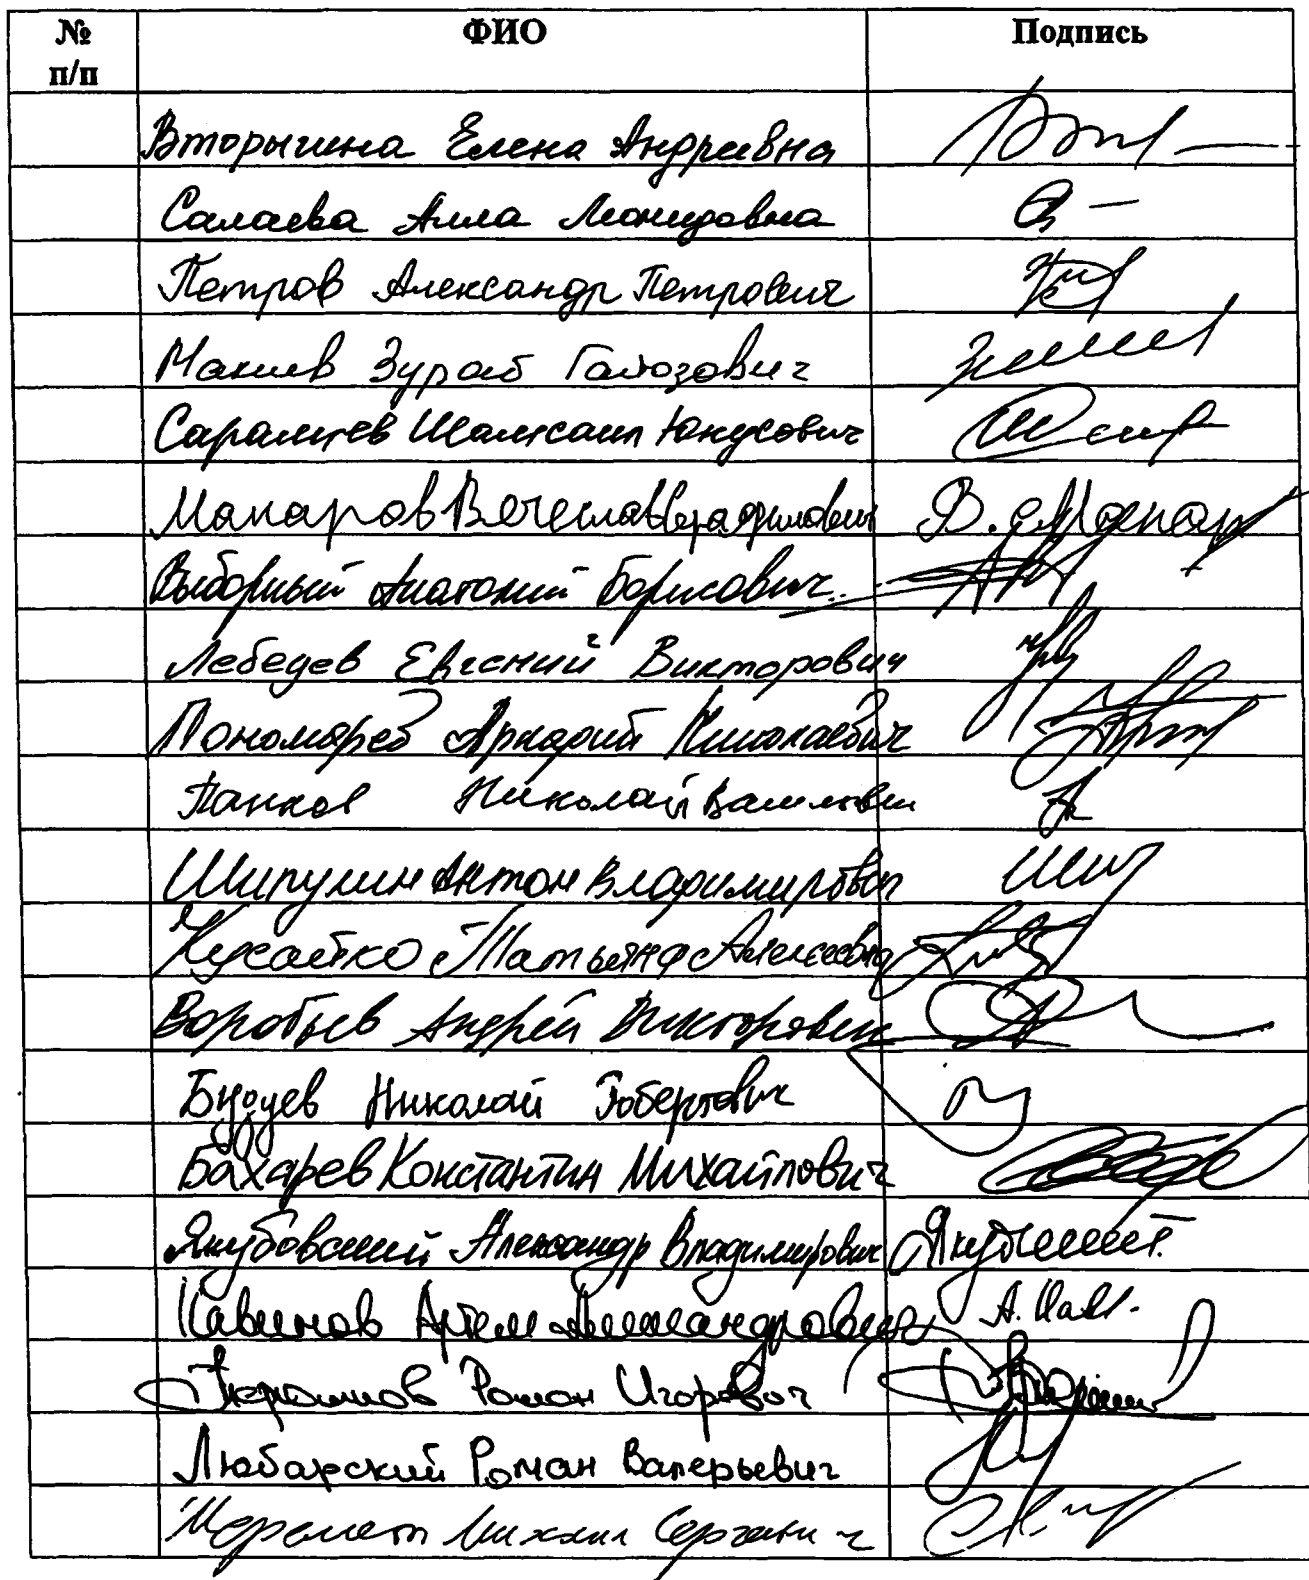 № п/п ФИО Подпись
Вторыгина Елена Андреевна
Салаева Алла Леонидовна
Петров Александр Петрович
Макиев Зураб Гайозович
Саралиев Шамсаил Юнусович
Макаров Вячеслав Серафимович В. Макар
Выборный Анатолий Борисович
Лебедев Евгений Викторович
Пономарев Аркадий Николаевич
Панков Николай Васильевич
Шипулин Антон Владимирович
Кусайко Татьяна Алексеевна
Воробьев Андрей Викторович
Будуев Николай Робертович
Бахарев Константин Михайлович
Якубовский Александр Владимирович
Кавинов Артем Александрович А. Кав
Роман Игоревич
Любарский Роман Валерьевич
Шеремет Михаил Сергеевич